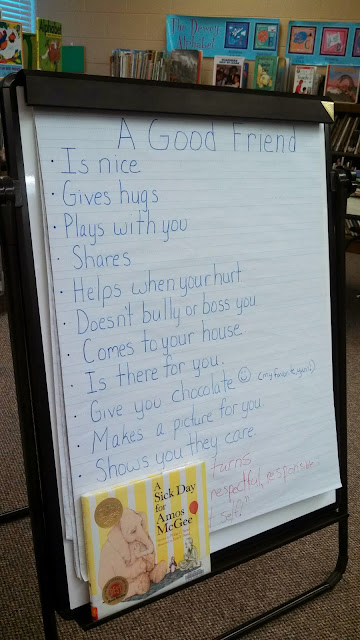 The Dewey
Alphabet
A Good Friend
· Is nice
· Gives hugs
· Plays with you
· Shares
· Helps when your hurt
· Doesn't bully or boss you
· Comes to your house
· Is there for you.
· Give you chocolate ☺ (my favorite again!)
· Makes a picture for you
· Shows you they care
turns
respectful, responsible
self"
A
Sick Day
for
Amos
McGee